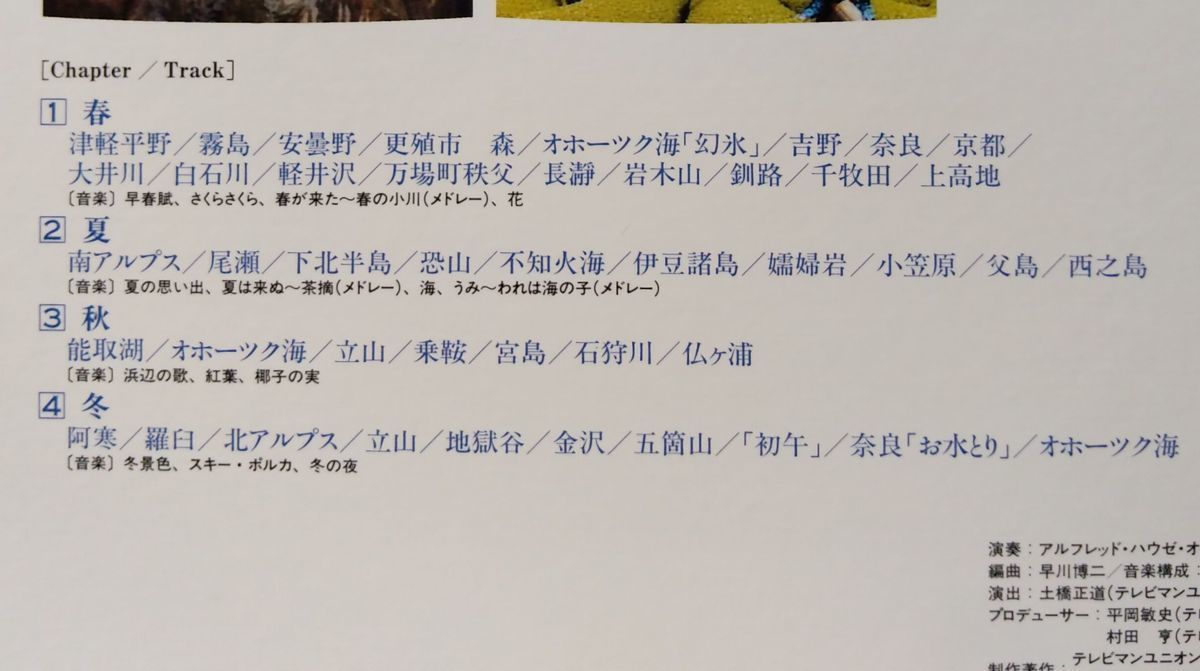 [Chapter ／ Track]
1 春
津軽平野／霧島／安曇野／更殖市　森／オホーツク海「幻氷」／吉野／奈良／京都／
大井川／白石川／軽井沢／万場町秩父／長瀞／岩木山／釧路／千牧田／上高地
〔音楽〕早春賦、さくらさくら、春が来た〜春の小川（メドレー）、花
2 夏
南アルプス／尾瀬／下北半島／恐山／不知火海／伊豆諸島／嬬婦岩／小笠原／父島／西之島
〔音楽〕夏の思い出、夏は来ぬ〜茶摘（メドレー）、海、うみ〜われは海の子（メドレー）
3 秋
能取湖／オホーツク海／立山／乗鞍／宮島／石狩川／仏ヶ浦
〔音楽〕浜辺の歌、紅葉、椰子の実
4 冬
阿寒／羅臼／北アルプス／立山／地獄谷／金沢／五箇山／「初午」／奈良「お水とり」／オホーツク海
〔音楽〕冬景色、スキー・ポルカ、冬の夜
演奏：アルフレッド・ハウゼ・オ
編曲：早川博二／音楽構成：
演出：土橋正道（テレビマンユ
プロデューサー：平岡敏史（テレ
村田　亨（テレ
テレビマンユニオン
制作著作：